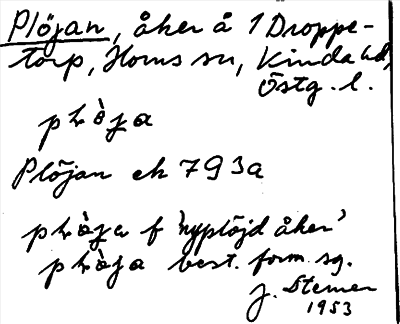 Plöjan, åker å 1 Droppe-
torp, Horns sn, Kinda hd,
Östg. l.
Plöjan ek 793a
f 'nyplöjd åker'
best. form sg.
J. Sterner
1953